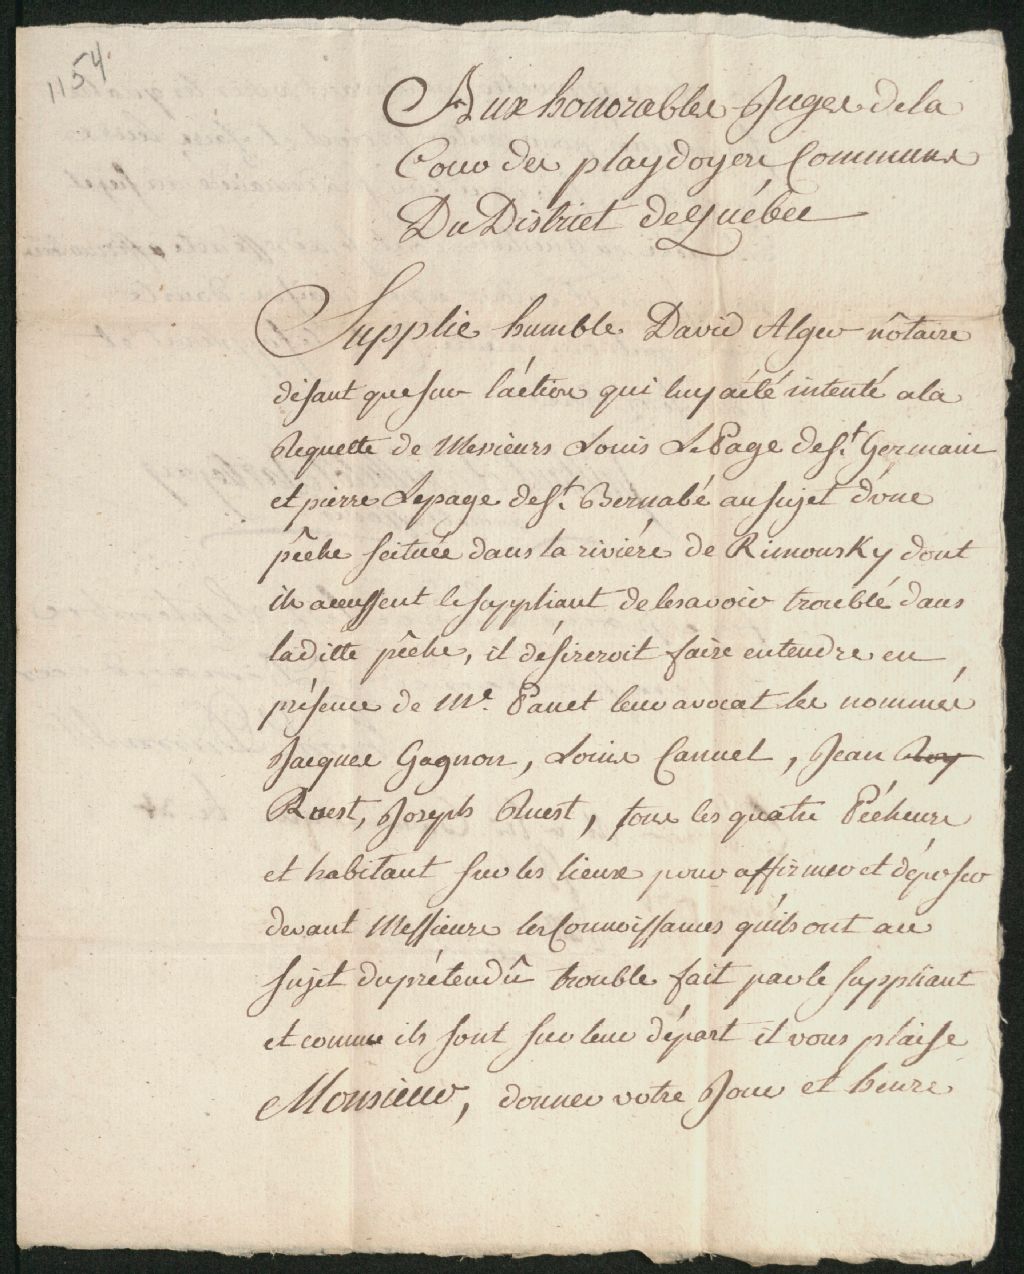 1154.
Aux honorables Juges de la
Cour des playdoyers Communs
Du District de Québec
Supplie humble David Alger nôtaire
disant que sur l'áction qui luy á été intenté a la
Requette de Messieurs Louis LePage de St. Germain
et pierre Lepage de St. Bernabé au sujet d'une
pêche scituée dans la riviére de Rimousky dont
ils accussent le suppliant de les avoir troublé dans
la ditte pêche, il désireroit faire entendre en
présence de Me. Panet leur avocat les nommés
Jacques Gagnon, Louis Canuel, Jean Roy
Ruest, Joseph Ruest, tous les quatre Pécheurs
et habitant sur les lieux pour affirmer et déposer
devant Messieurs les Connoissances qu'ils ont au
sujet du prétendû trouble fait par le suppliant
et comme ils sont sur leur départ il vous plaise
Monsieur, donner votre Jour et heure